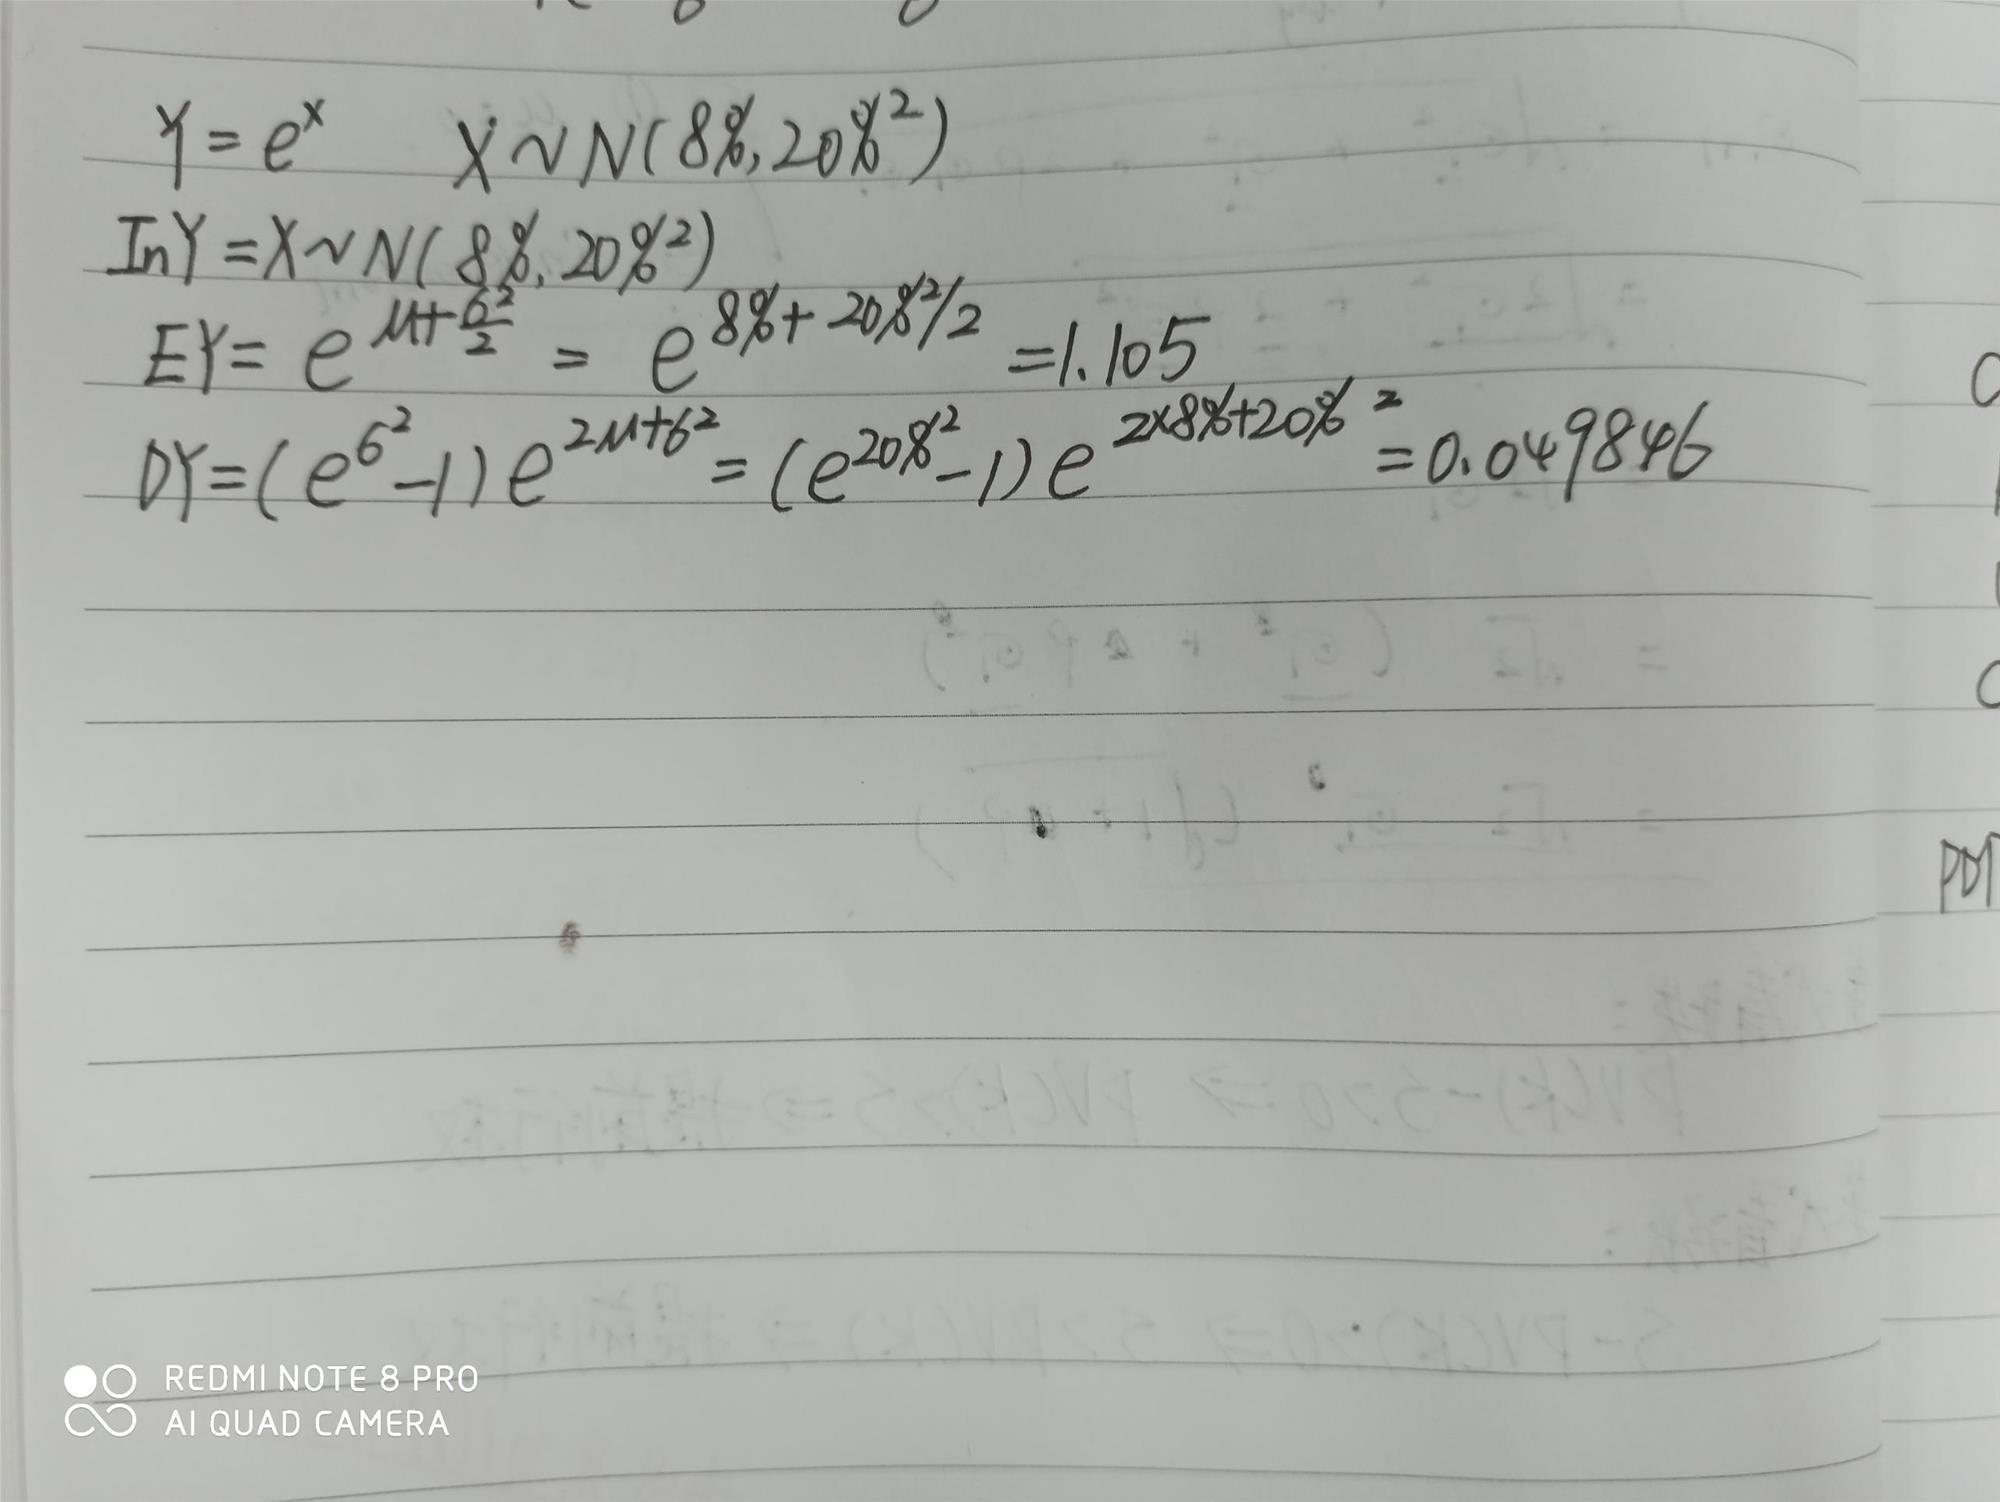 Y = e^x   X ~ N(8%, 20%^2)
InY = X ~ N(8%, 20%^2)
EY = e^{μ+σ^2/2} = e^{8%+20%^2/2} = 1.105
DY = (e^{σ^2}-1) e^{2μ+σ^2} = (e^{20%^2}-1) e^{2×8%+20%^2} = 0.049846
PDT
REDMI NOTE 8 PRO
AI QUAD CAMERA